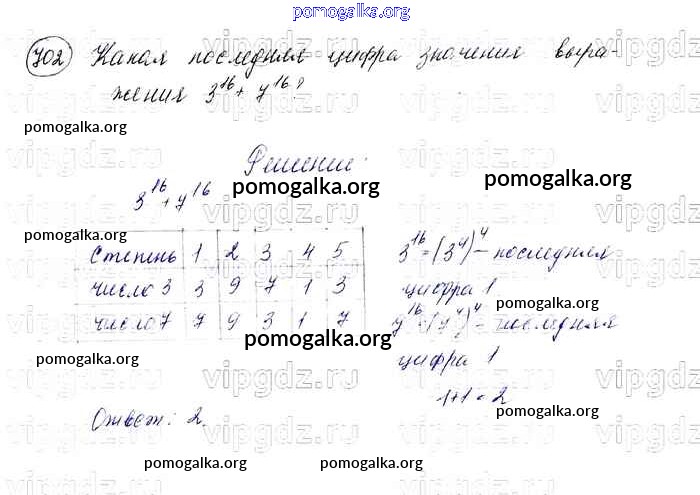 pomogalka.org
702 Какая последняя цифра значения выра-
жения 3^16 + 7^16?
pomogalka.org
Решение:
3^16 + 7^16
pomogalka.org
pomogalka.org
pomogalka.org
степень 1 2 3 4 5
число 3 3 9 7 1 3
число 7 7 9 3 1 7
3^16 = (3^4)^4 - последняя
цифра 1
pomogalka.org
7^16 = (7^4)^4 - последняя
цифра 1
1+1=2
pomogalka.org
pomogalka.org
Ответ: 2.
pomogalka.org
pomogalka.org
pomogalka.org
vipgdz.ru